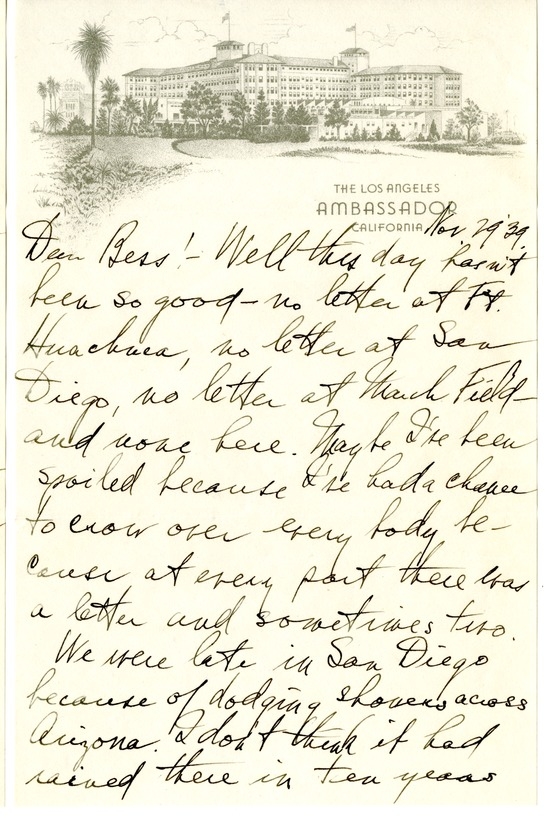 THE LOS ANGELES
AMBASSADOR
CALIFORNIA
Nov 29 '39.
Dear Bess:- Well this day hasn't
been so good - no letter at Ft.
Huachuca, no letter at San
Diego, no letter at March Field -
and none here. Maybe I've been
spoiled because I've had a chance
to crow over every body be-
cause at every port there was
a letter and sometimes two.
We were late in San Diego
because of dodging showers across
Arizona. I don't think it had
rained there in ten years